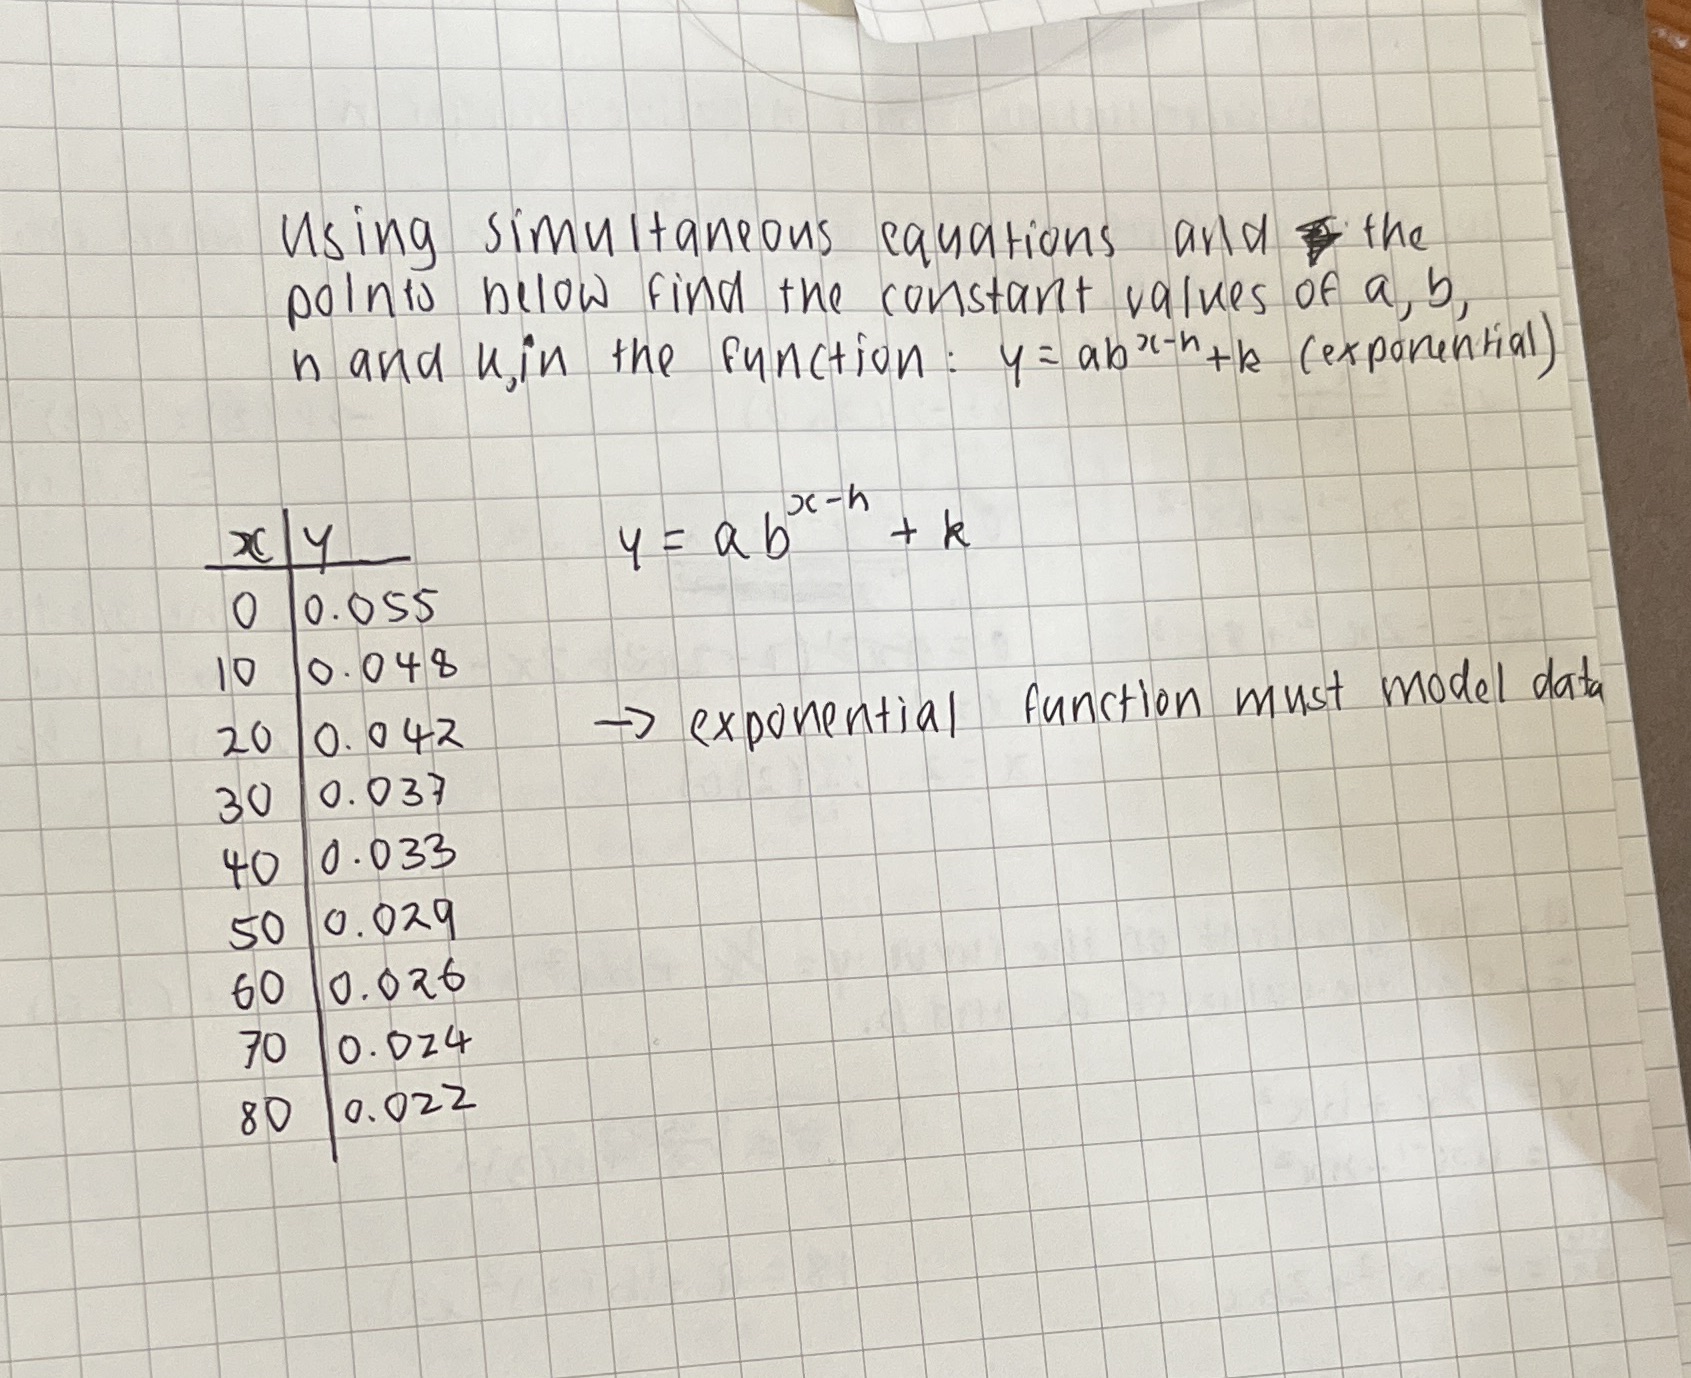 Using simultaneous equations and the
points below find the constant values of a, b,
h and k, in the function: y = ab^{x-h} + k (exponential)
x | y
0 | 0.055
10 | 0.048
20 | 0.042
30 | 0.037
40 | 0.033
50 | 0.029
60 | 0.026
70 | 0.024
80 | 0.022
y = ab^{x-h} + k
→ exponential function must model data